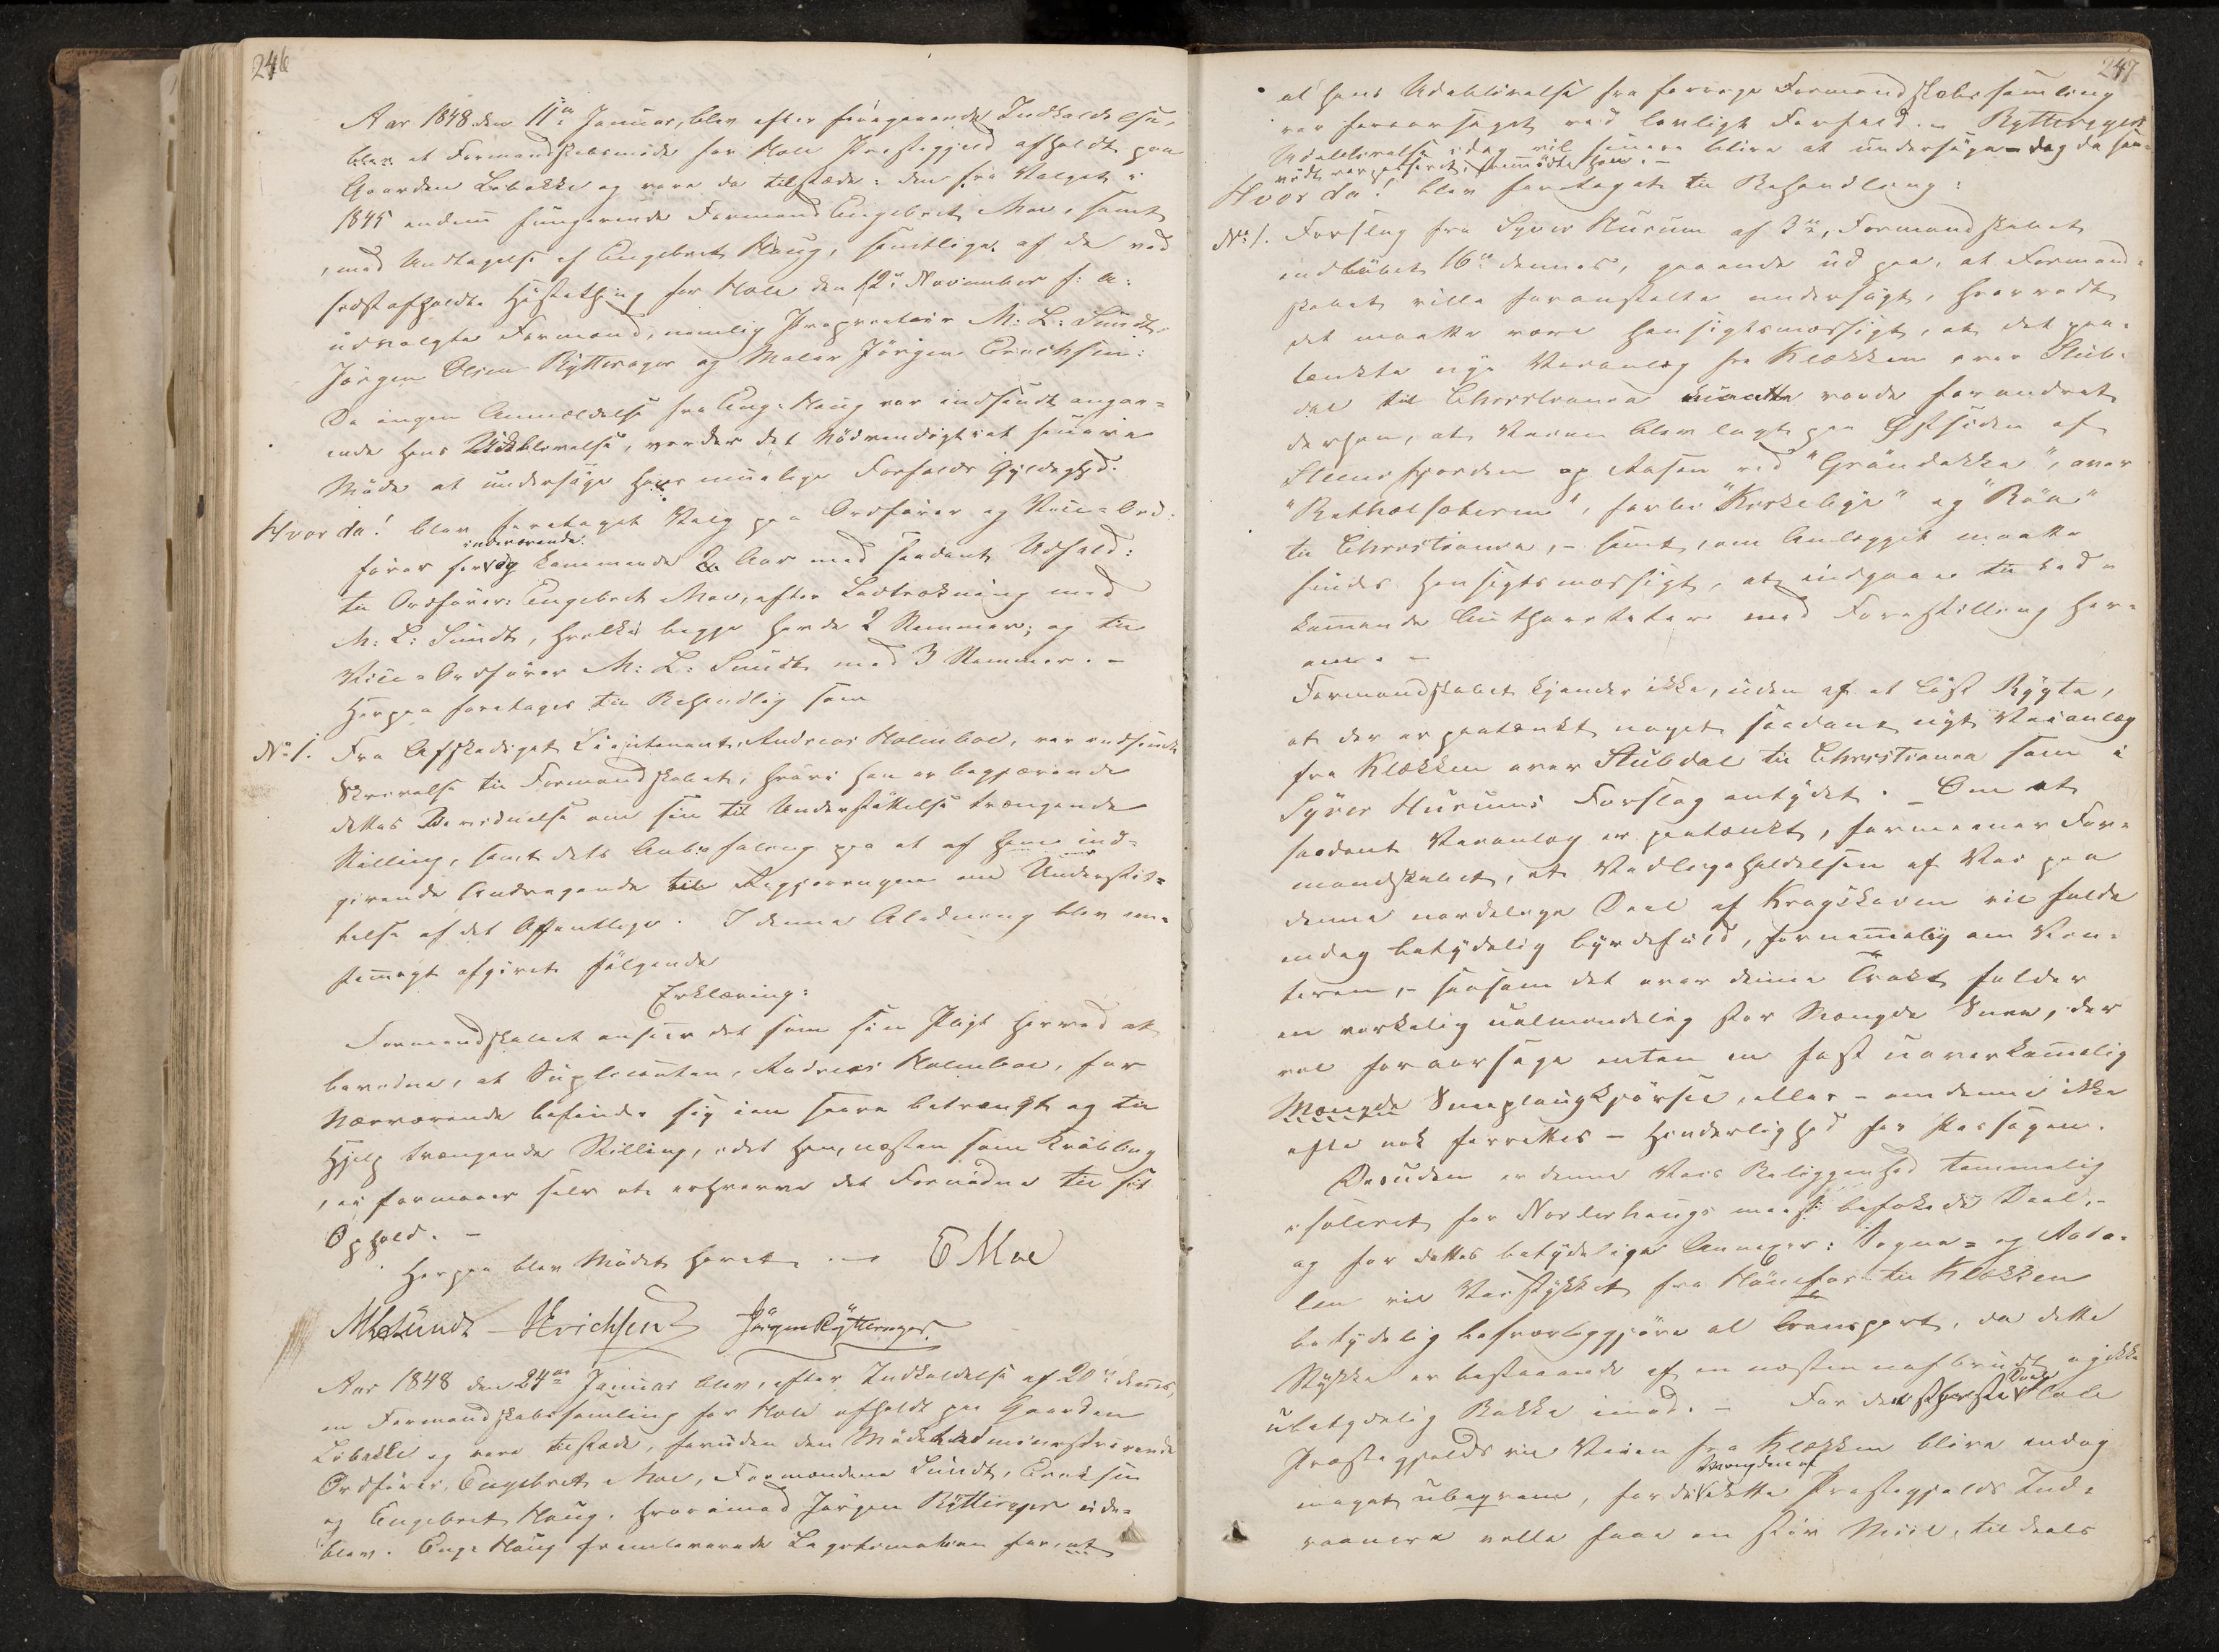 246
Aar 1848 den 11te Januar, blev efter foregaaende Indkaldelse,
blev et Formandskabsmøde for Hole Præstegjeld afholdt paa
Gaarden Løbakke og vare da tilstæde: den fra Valget i
1845 endnu fungerende Formand Engebret Moe, samt
, med Undtagelse af Engebret Haug, samtlige af de ved
sidst afholdte Høstething for Hole den 12te November f: A:
udvalgte Formænd, nemlig Proprietair M: L: Sundt,
Jørgen Olsen Rytterager og Maler Jørgen Erichsen:
Da ingen Anmældelse fra Eng: Haug var indsendt angaa=
ende hans Udeblivelse, vorder det nødvendigt i et senere
Møde at undersøge hans muelige Forfalds Gyldighed.
Hvor da! blev foretaget Valg paa Ordfører og Vice=Ord=
indeværende
fører for og kommende 2 Aar med saadant Udfald:
til Ordfører: Engebret Moe, efter Lodtrækning med
M: L: Sundt, hvilke begge havde 2 Stemmer; og til
Vice=Ordfører M: L: Sundt med 3 Stemmer. -
Herpaa foretoges til Behandling som
No 1. Fra Afskediget Lieutenant, Andreas Holmboe, var indsendt
Skrivelse til Formandskabet, hvori han er begjærende
dettes Bevidnelse om sin til Understøttelse trængende
Stilling, samt dets Anbefaling paa et af ham ind=
givende Andragende til Regjeringen om Understøt=
telse af det Offentlige. I denne Anledning blev een=
stemmigt afgivet følgende
Erklæring:
Formandskabet anseer det som sin Pligt herved at
bevidne, at Suplicanten, Andreas Holmboe, for
Nærværende befinder sig i en saare betrængt og til
Hjelp trængende Stilling, idet han, næsten som Krøbling
, ei formaaer selv at erhverve det Fornødne til sit
Ophold. -
Herpaa blev Mødet hævet. - E Moe
MLSundt JErichsen Jørgen Rytterager
Aar 1848 den 24de Januar blev, efter Indkaldelse af 20de dennes,
en Formandskabssamling for Hole afholdt paa Gaarden
Løbakke og vare tilstæde, foruden den Mødet administrerende
Ordfører, Engebret Moe, Formændene Sundt, Erichsen
og Engebret Haug, hvorimod Jørgen Rytterager ude=
blev. Enge: Haug fremleverede Legitimation for, at
247
at hans Udeblivelse fra forrige Formandskabssamling
var foraarsaget ved lovligt Forfald. - Rytteragers
Udeblivelse idag vil senere blive at undersøge - dog da
Hvor da! blev foretaget til Behandling:
No 1. Forslag fra Syver Hurum af 3die, Formandskabet
indløbet 16de dennes, gaaende ud paa, at Formand=
skabet ville foranstalte undersøgt, hvorvidt
det maatte være hensigtsmæssigt, at det paa=
tænkte nye Veianlæg fra Klækken over Stub=
dal til Christiania maatte vorde forandret
derhen, at Veien blev lagt paa Østsiden af
Steensfjorden op Aasen ved "Grøndokka", over
forbi "Kirkebye" og "Bøa"
til Christiania, - samt, om Anlægget maatte
findes hensigtsmæssigt, at indgaae til ved=
kommende Authoriteter med Forestilling her=
om. -
Formandskabet kjender ikke, uden af et løst Rygte,
at der er paatænkt noget saadant nyt Veianlæg
fra Klækken over Stubdal til Christiania som i
Syver Hurums Forslag antydet. - Om et
saadant Veianlæg er paatænkt, formeener For=
mandskabet, at Vedligeholdelsen af Vei paa
denne nordelige Deel af Krogskoven vil falde
endog betydelig byrdefuld, fornemmelig om Vin=
teren, - saasom det over denne Trakt falder
en virkelig ualmindelig stor Mængde Snee, der
vil foraarsage enten en fast uoverkommelig
Mængde Sneeplougkjørsel, eller - om denne ikke
ofte nok forrettes - Hinderlighed for Passagen.
Desuden er denne Veis Beliggenhed temmelig
isoleret for Norderhougs meest befolkede Deel, -
og for dettes betydelige Annexer: Sogne= og Aada=
len vil Veistykket fra Hønefos til Klækken
betydelig besværliggjøre al Transport, da dette
Stykke er bestaaende af en næsten uafbrudt og ikke
Deel
ubetydelig Bakke imod. - For den største Hole
Præstegjelds vil Veien fra Klækken blive endog
Mængden af
meget ubeqvem, fordi dette Præstegjelds Ind=
vaanere ville faae en stor Miil, tildeels